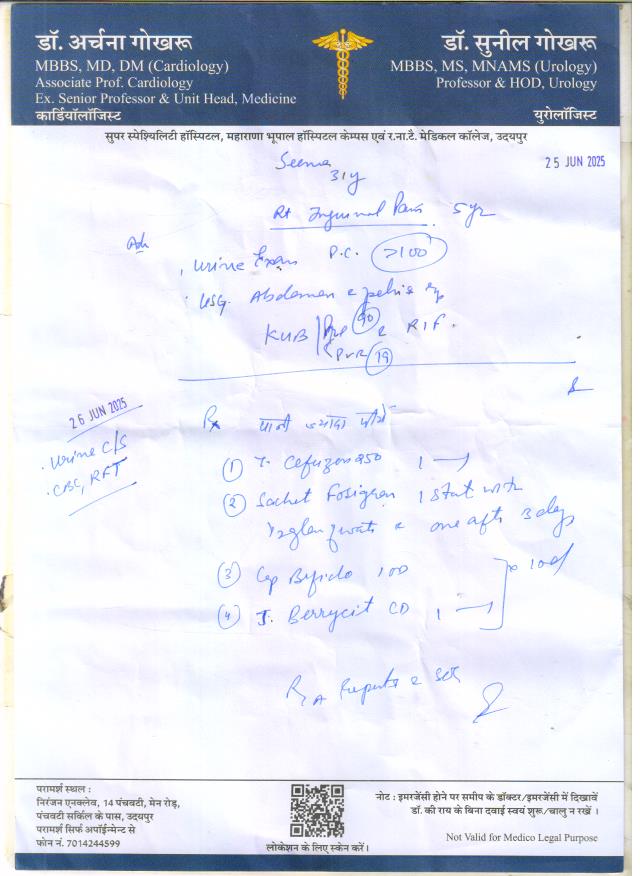 डॉ. अर्चना गोखरू
MBBS, MD, DM (Cardiology)
Associate Prof. Cardiology
Ex. Senior Professor & Unit Head, Medicine
कार्डियॉलॉजिस्ट
डॉ. सुनील गोखरू
MBBS, MS, MNAMS (Urology)
Professor & HOD, Urology
युरोलॉजिस्ट
सुपर स्पेश्यिलिटी हॉस्पिटल, महाराणा भूपाल हॉस्पिटल केम्पस एवं र.ना.टै. मेडिकल कॉलेज, उदयपुर
25 JUN 2025
Seema
31y
Rt Inguinal Pain 5 yr
Urine Exam P.C. >100
USG. Abdomen & pelvis
KUB 90 & RIF.
PVR 19
26 JUN 2025
Urine C/S
CBC, RFT
Rx पानी ज्यादा पीये
(1) T. 250 1
(2) Sachet 1 Stat with
1/2 glass water & one after 3 days
(3) Cap Bifido 100
(4) T. Berrycit CD 1
x 10d
Reports
परामर्श स्थल :
निरंजन एनक्लेव, 14 पंचवटी, मेन रोड़,
पंचवटी सर्किल के पास, उदयपुर
परामर्श सिर्फ अपॉईन्मेन्ट से
फोन नं. 7014244599
लोकेशन के लिए स्केन करें।
नोट : इमरजेंसी होने पर समीप के डॉक्टर/इमरजेंसी में दिखावें
डॉ. की राय के बिना दवाई स्वयं शुरू/चालु न रखें ।
Not Valid for Medico Legal Purpose